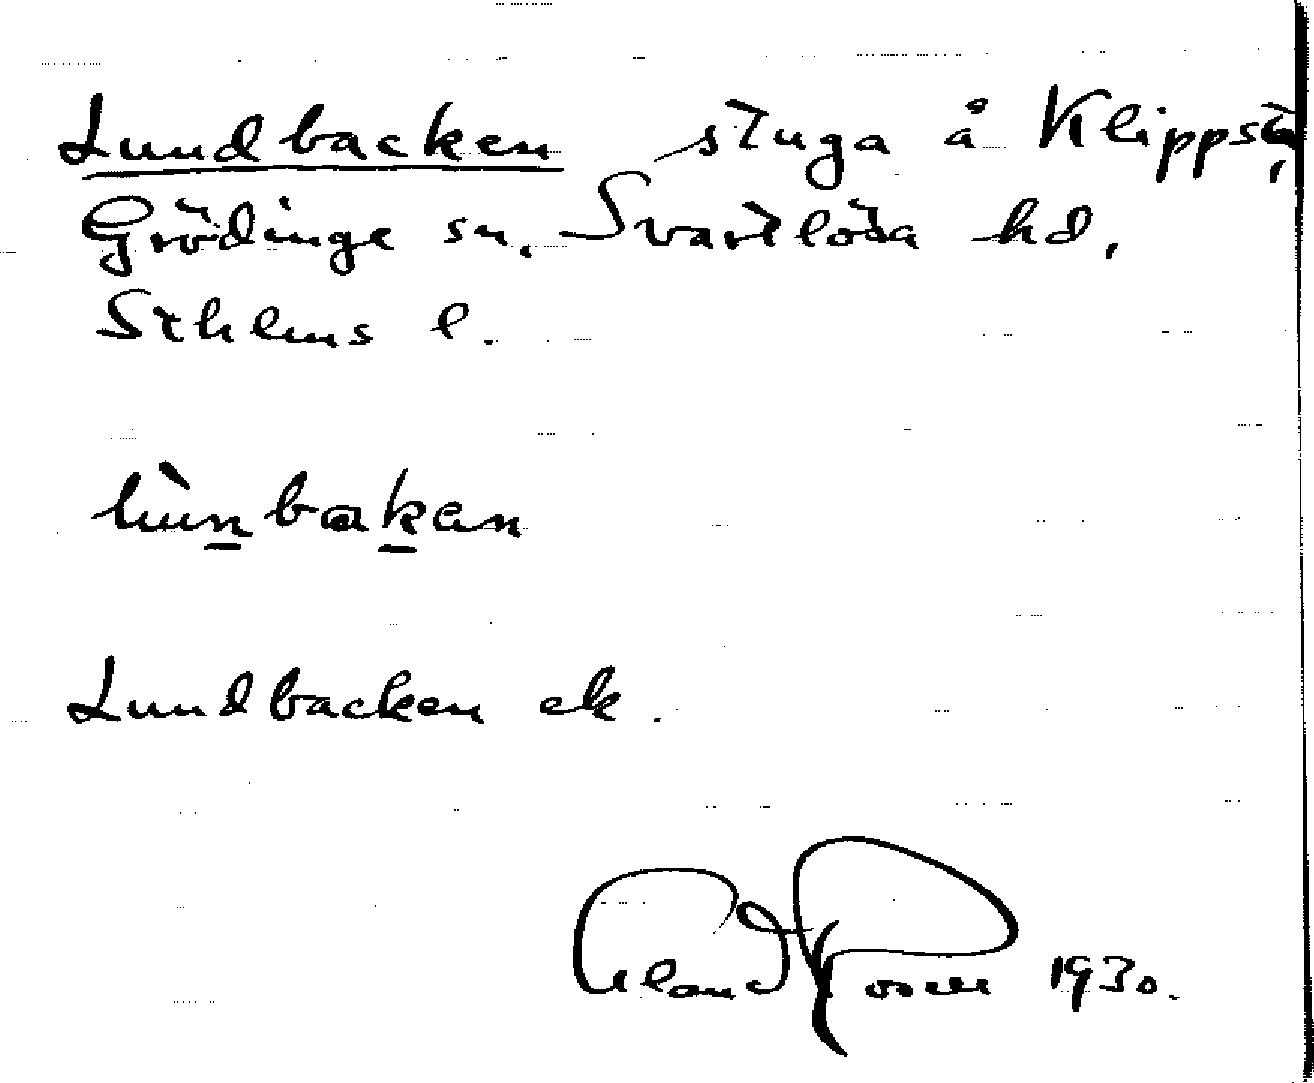 Lundbacken stuga å Klippsta,
Grödinge sn. Svartlösa hd,
Sthlms l.
lùnbakan
Lundbacken ek.
1930.